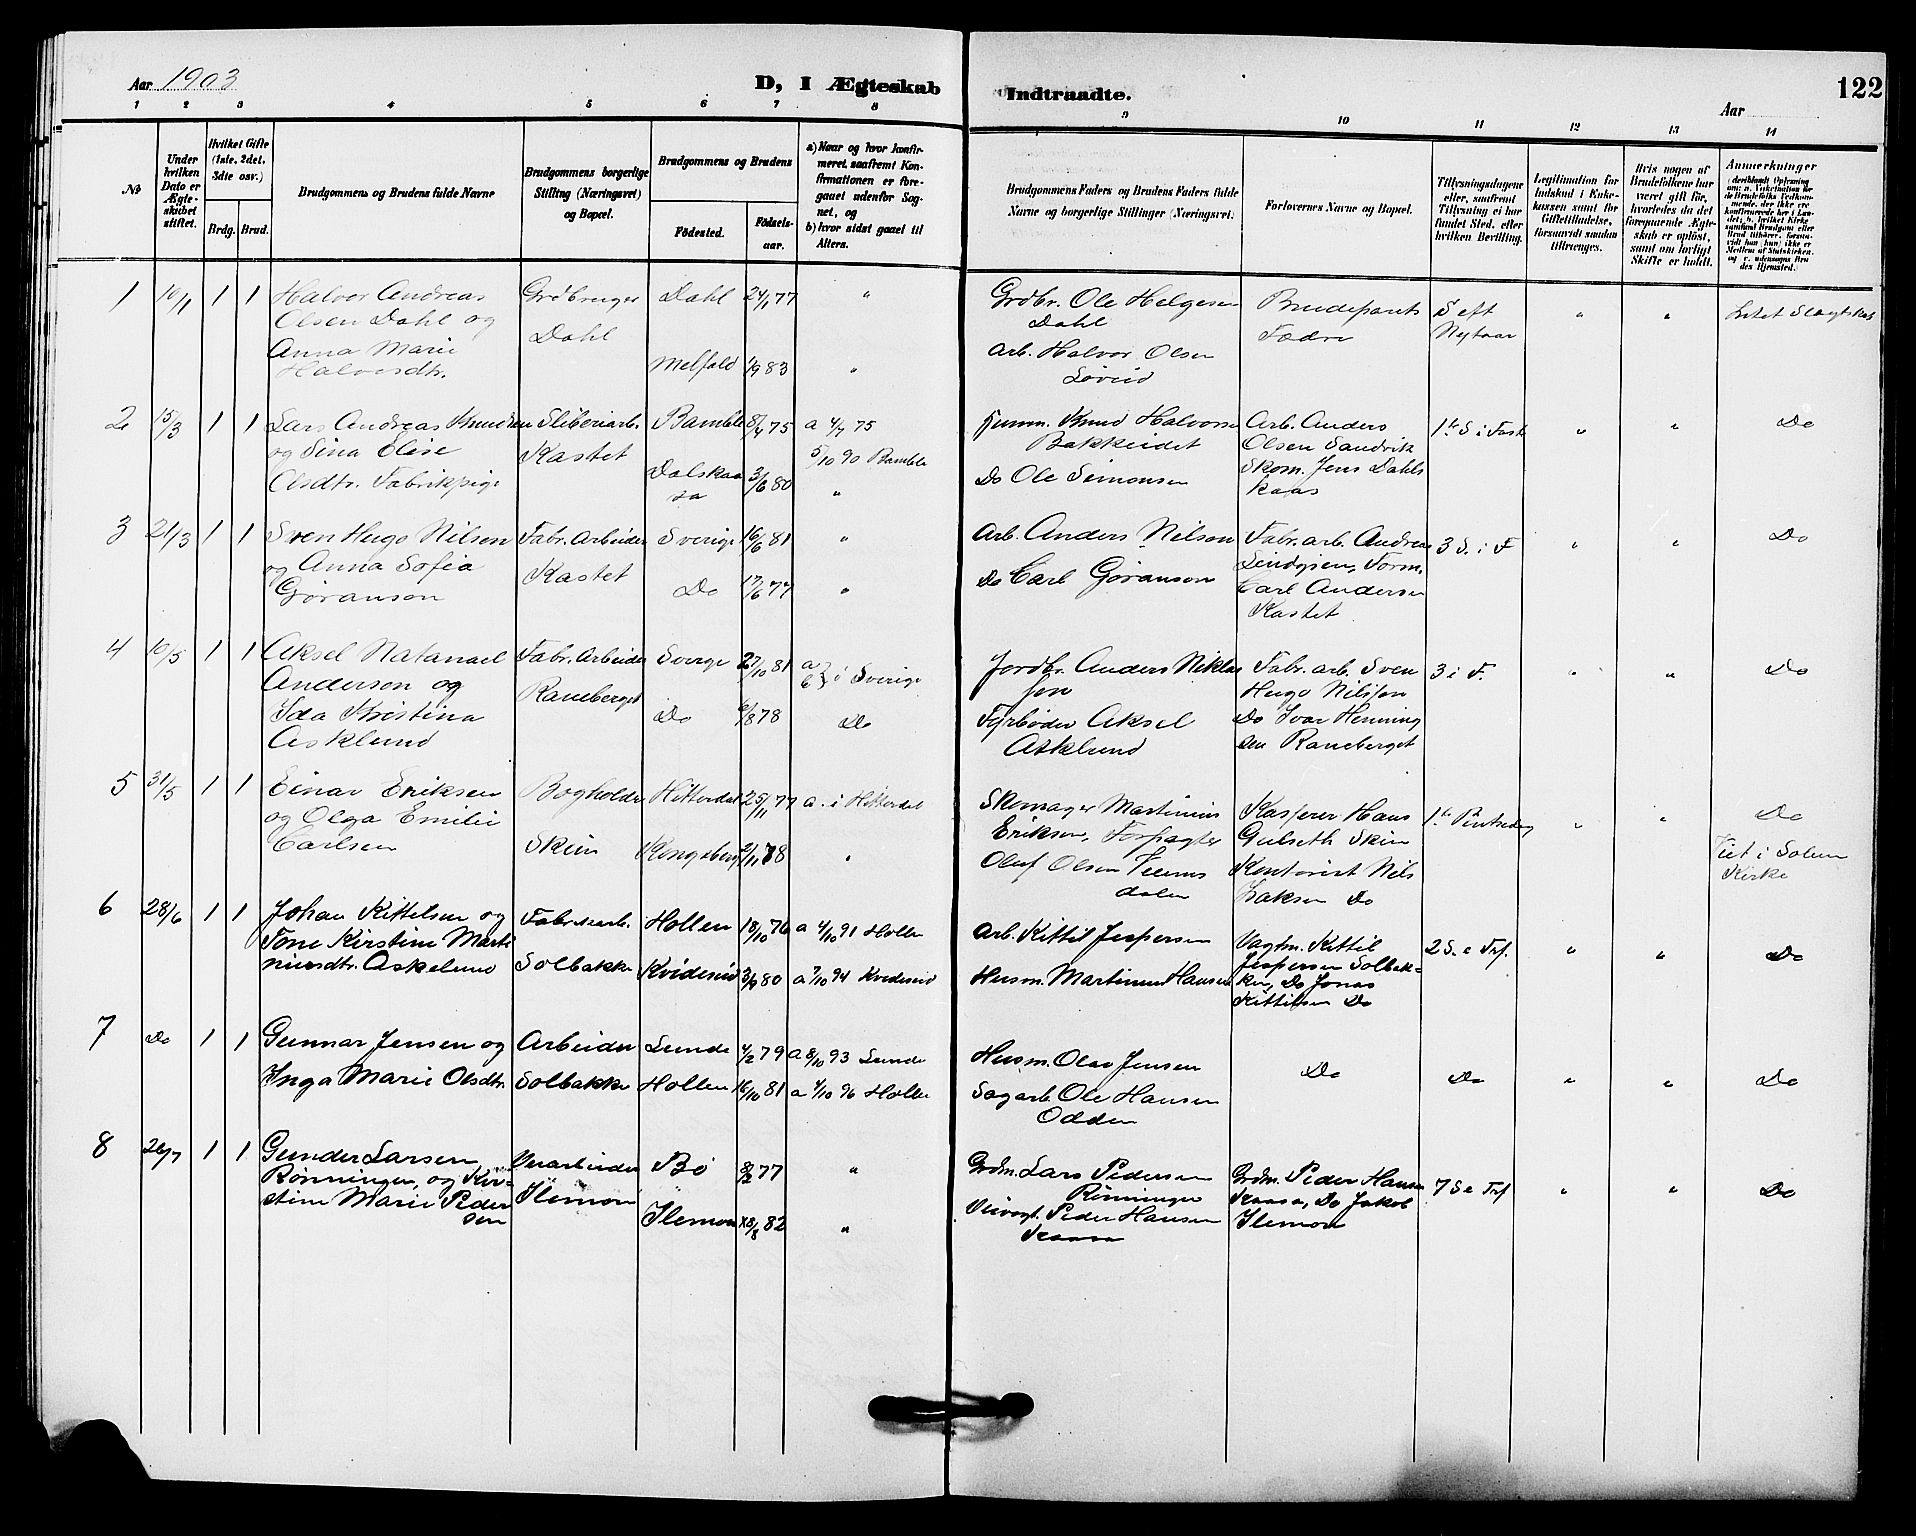 Aar 1903
D, I Ægteskab Indtraadte.
Aar
122
1 2 3 4 5 6 7 8 9 10 11 12 13 14
No
Under hvilken Dato er Ægteskabet stiftet.
Hvilket Gifte (1ste, 2det, 3die osv.)
Brdg. Brud.
Brudgommens og Brudens fulde Navne
Brudgommens borgerlige Stilling (Næringsvei) og Bopæl.
Brudgommens og Brudens
Fødested.
Fødselsaar.
a) Naar og hvor konfirmeret, saafremt Konfirmationen er foregaaet udenfor Sognet, og
b) hvor sidst gaaet til Alters.
Brudgommens Faders og Brudens Faders fulde Navne og borgerlige Stillinger (Næringsvei).
Forlovernes Navne og Bopæl.
Tillysningsdagene eller, saafremt Tillysning ei har fundet Sted, efter hvilken Bevilling.
Legitimation for Indskud i Enkekassen samt for Giftetilladelse, forsaavidt saadan tiltrænges.
Hvis nogen af Brudefolkene har været gift før, hvorledes da det foregaaende Ægteskab er opløst, samt om lovligt Skifte er holdt.
Anmerkninger
1 10/1 1 1 Halvor Andreas
Olsen Dahl og
Anna Marie
Halvorsdtr.
Grdbruger
Dahl
Dahl 24/1 77 "
Melfald 1/9 83 "
Grdbr. Ole Helgesen
Dahl
Arb. Halvor Olsen
Løveid
Brudeparets
Fædre
S eft
Nytaar
" "
Intet Slagtskab
2 15/3 1 1 Lars Andreas Knudsen
og Sina Elise
Olsdtr. Fabrikpige
Sliberiarb.
Kastet
Bamble 8/4 75 a 4/7 75
5/10 90 Bamble
Dalskaasa 3/6 80 "
Knud Halvorsen
Bakkeidet
Do Ole Simonsen
Arb. Anders
Olsen Sandvik
Skom. Jens Dahls
kaas
1ste S i Fast
" "
Do
3 21/3 1 1 Sven Hugo Nilson
og Anna Sofia
Gøranson
Fabr. Arbeider
Kastet
Sverige 16/6 81 "
Do 17/6 77 "
Arb. Anders Nilson
Do Carl Gøranson
Fabr. arb. Andreas
Lindgren, Form.
Carl Andersen
Kastet
3 S. i F
" "
Do
4 10/5 1 1 Aksel Natanael
Anderson og
Ida Kristina
Asklund
Fabr. Arbeider
Raneberget
Sverge 27/10 81 a b } i Sverige
Do 6/8 78 Do
Jordbr. Anders Niklas
son
Fyrbøder Aksel
Asklund
Fabr. arb. Sven
Hugo Nilsson
Do Ivar Henning
sen Raneberget
3 i F.
" "
Do
5 31/5 1 1 Einar Eriksen
og Olga Emilie
Carlsen
Bogholder
Skien
Hitterdal 25/11 77 a. i Hitterdal
Kongsberg 21/11 78 "
Skomager Martinius
Eriksen, Forpagter
Oluf Olsen
dalen
Kasserer Hans
Gulseth Skien
Kontorist Nils
Isaksen Do
1ste Pintsedag
" "
Do
Viet i Solum
Kirke
6 28/6 1 1 Johan Kittelsen og
Tone Kirstine Marti
niusdtr. Askelund
Fabrikarb.
Solbakke
Hollen 18/10 76 a 4/10 91 Hollen
Kvideseid 3/9 80 a 7/10 94 Kvideseid
Arb. Kittil Jespersen
Husm. Martinius Hansen
Vagtm. Kittil
Jespersen Solbak-
ken, Do Jonas
Kittilsen Do
2 S. e Trf.
" "
Do
7 Do 1 1 Gunnar Jensen og
Inga Marie Olsdtr.
Arbeider
Solbakke
Lunde 4/2 79 a 8/10 93 Lunde
Hollen 16/10 81 a 4/10 96 Hollen
Husm. Olav Jensen
Sagarb. Ole Hansen
Odden
Do Do " " Do
8 26/7 1 1 Gunder Larsen
Rønningen, og Kir-
stine Marie Peder
sen
Veiarbeider
Ilemon
Bø 8/2 77 "
Ilemon 18/8 82 "
Grdm. Lars Pedersen
Rønningen
Veivogt. Peder Hansen
Kraasa
Grdm. Peder Hansen
Kraasa, Do Jakob
Ilemon
7 S e Trf
" "
Do